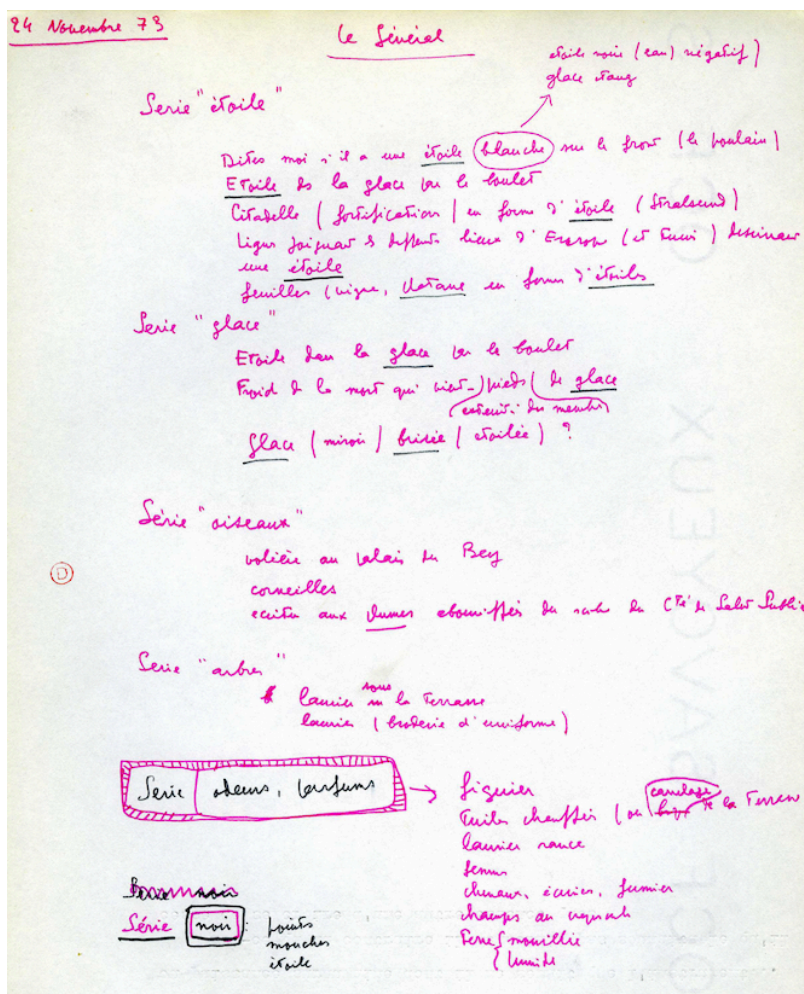 24 Novembre 73
Le Général
étoile noire (eau) négatif)
glace étang
Serie "étoile"
Dites moi s'il a une étoile blanche sur le front (le poulain)
Etoile ds la glace par le boulet
Citadelle (fortification) en forme d'étoile (Stralsund)
Lignes joignant les différents lieux d'Europe (et Tunis) dessinant
une étoile
feuilles (vigne, platane en forme d'étoiles
Serie "glace"
Etoile dans la glace par le boulet
Froid de la mort qui vient pieds de glace
des membres
glace (miroir) brisée (étoilée) ?
Série "oiseaux"
volière au palais du Bey
D
corneilles
aux plumes ébouriffées du Cté de Salut Public
Serie "arbres"
sous
laurier la Terrasse
laurier (broderie d'uniforme)
Serie odeurs, parfums
figuier
carrelage
Tuiles chauffées (ou de la Terrasse
laurier rance
femmes
chevaux, écuries, fumier
champs au crépuscule
Terre mouillée
humide
Serie noir
Série noir
points
mouches
étoile